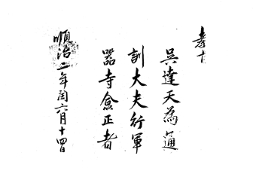 孝十
吳達天為通
訓大夫行軍
器寺僉正者
順治二年閏六月十四日